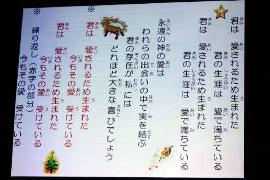 君は 愛されるため生まれた
君の生涯は 愛で満ちている
君は 愛されるため生まれた
君の生涯は 愛で満ちている
永遠の神の愛は
われらの出会いの中で実を結ぶ
君の存在が 私には
どれほど大きな喜びでしょう
※君は 愛されるため生まれた
今もその愛 受けている
君は 愛されるため生まれた
今もその愛 受けている
※繰り返し（赤字の部分）